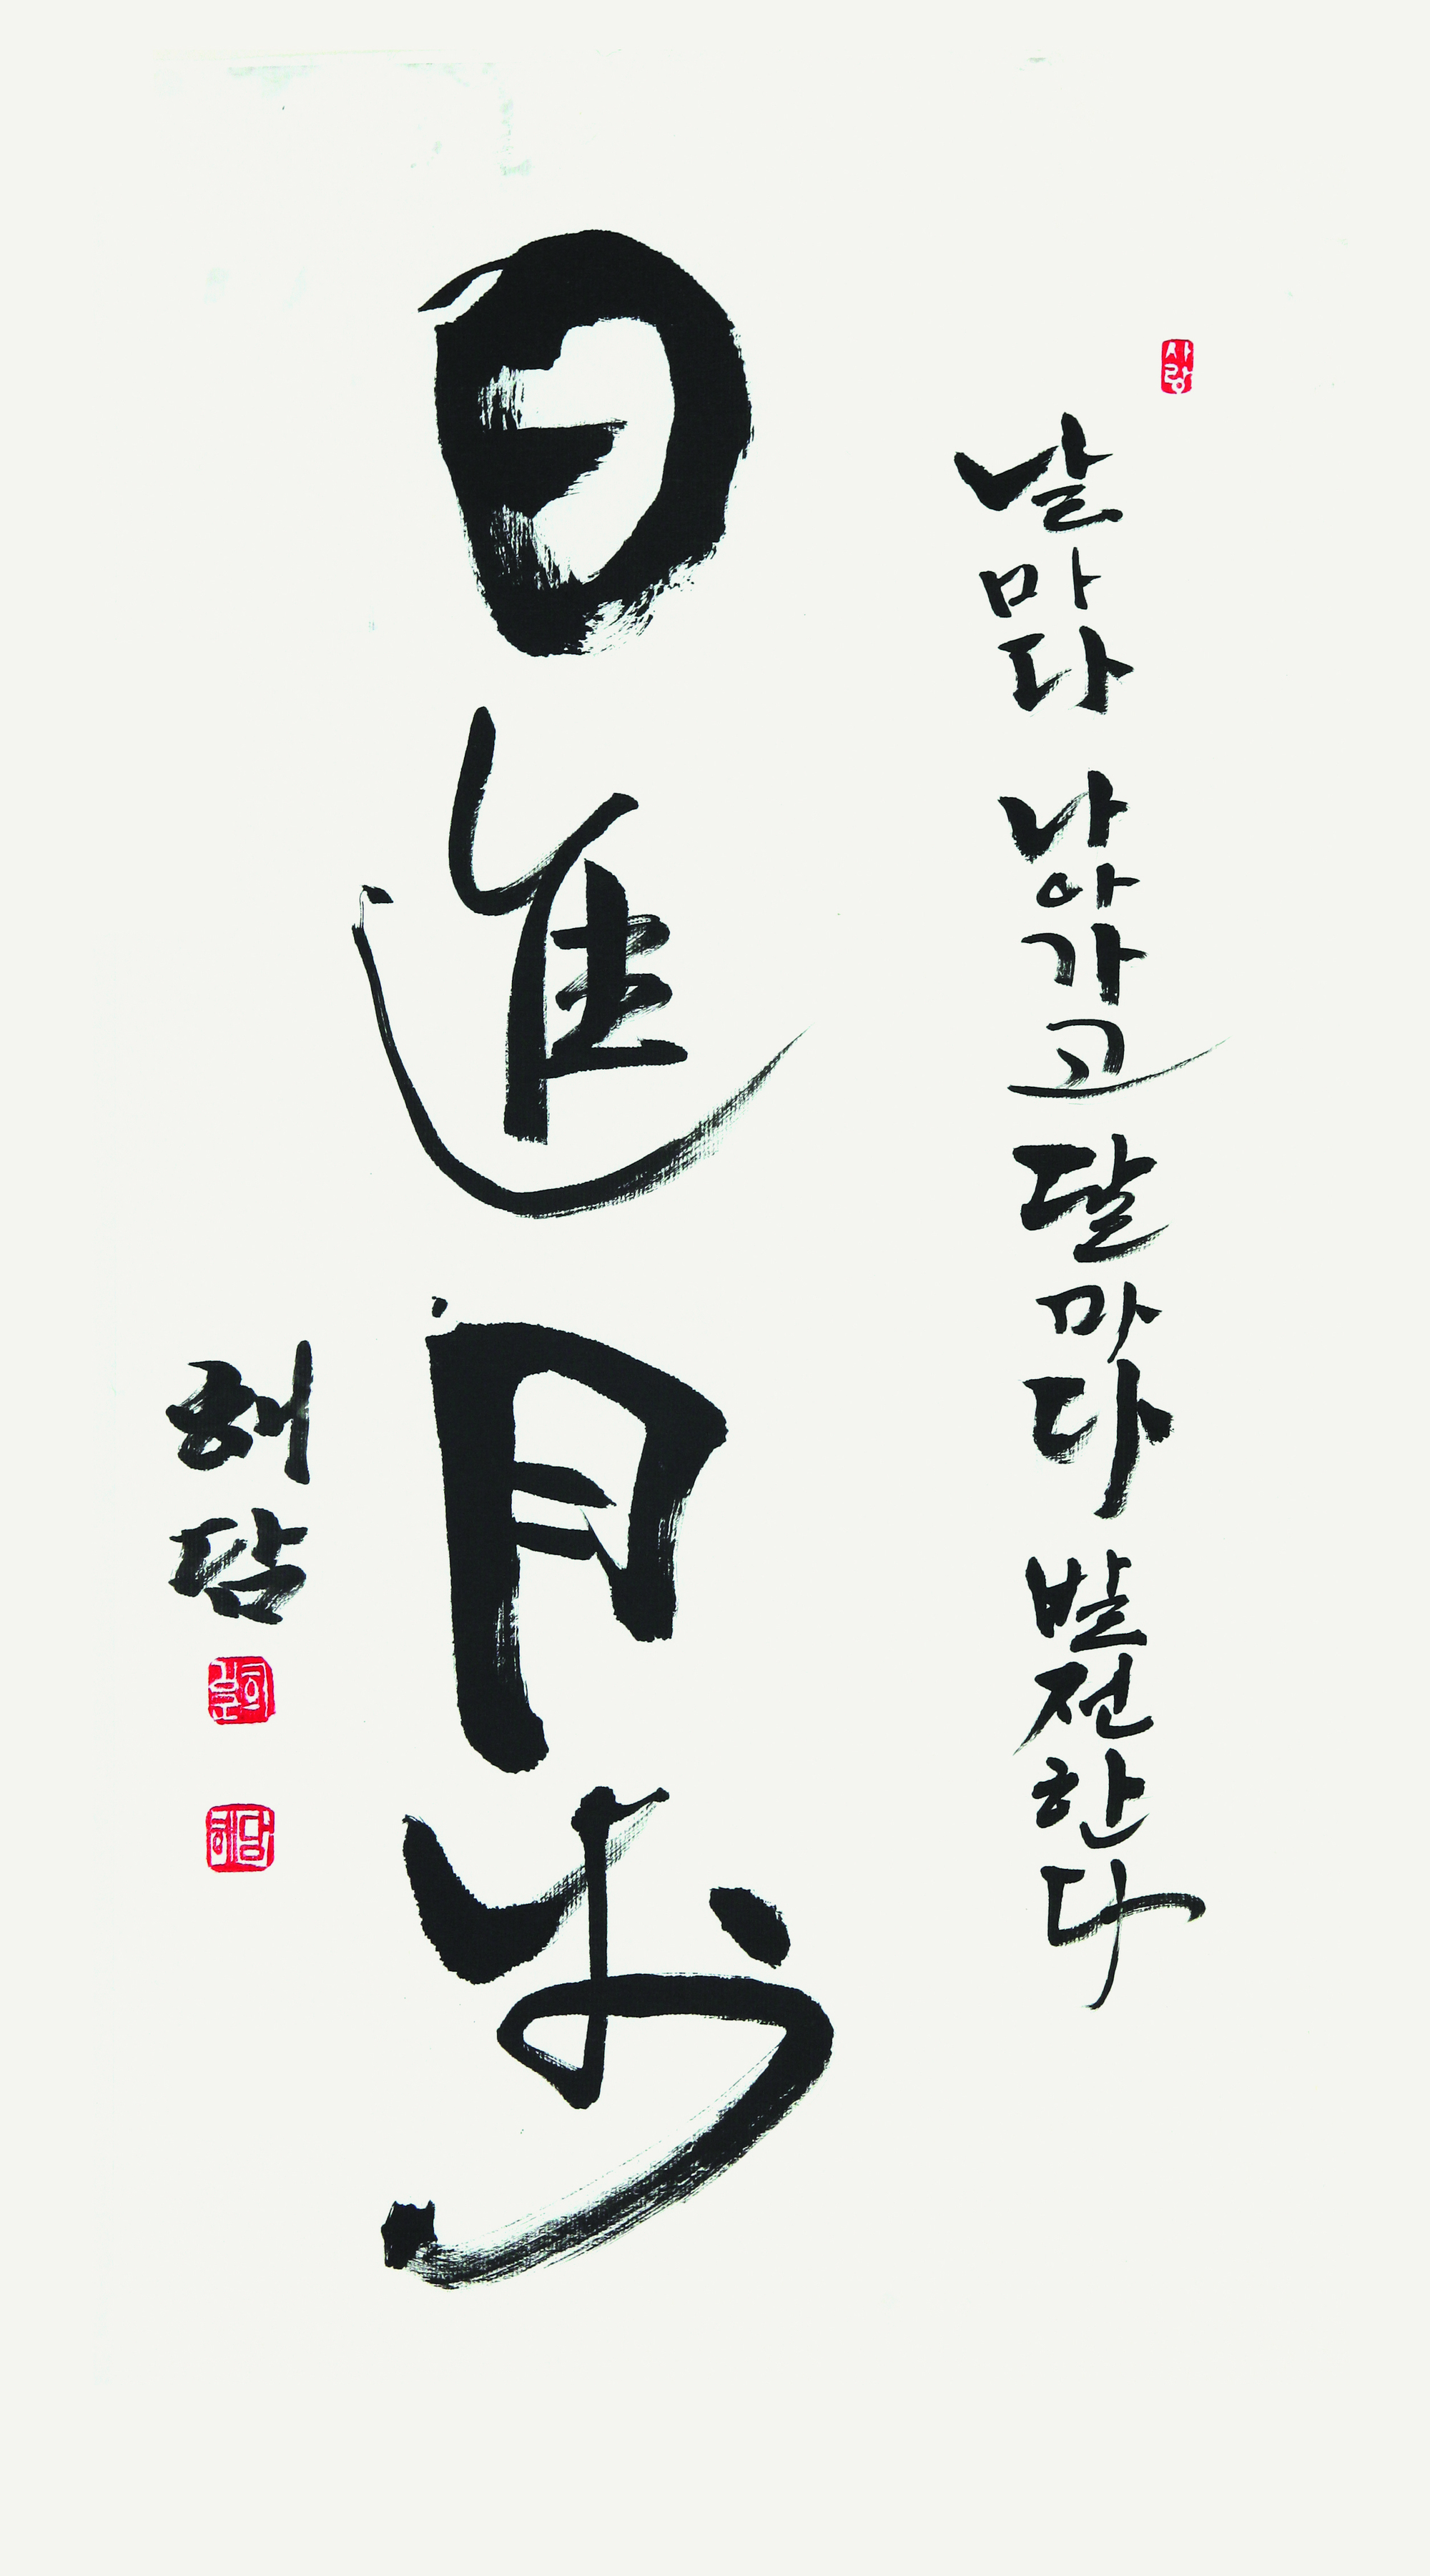 사랑
날마다 나아가고 달마다 발전한다
日進月步
해담
해담